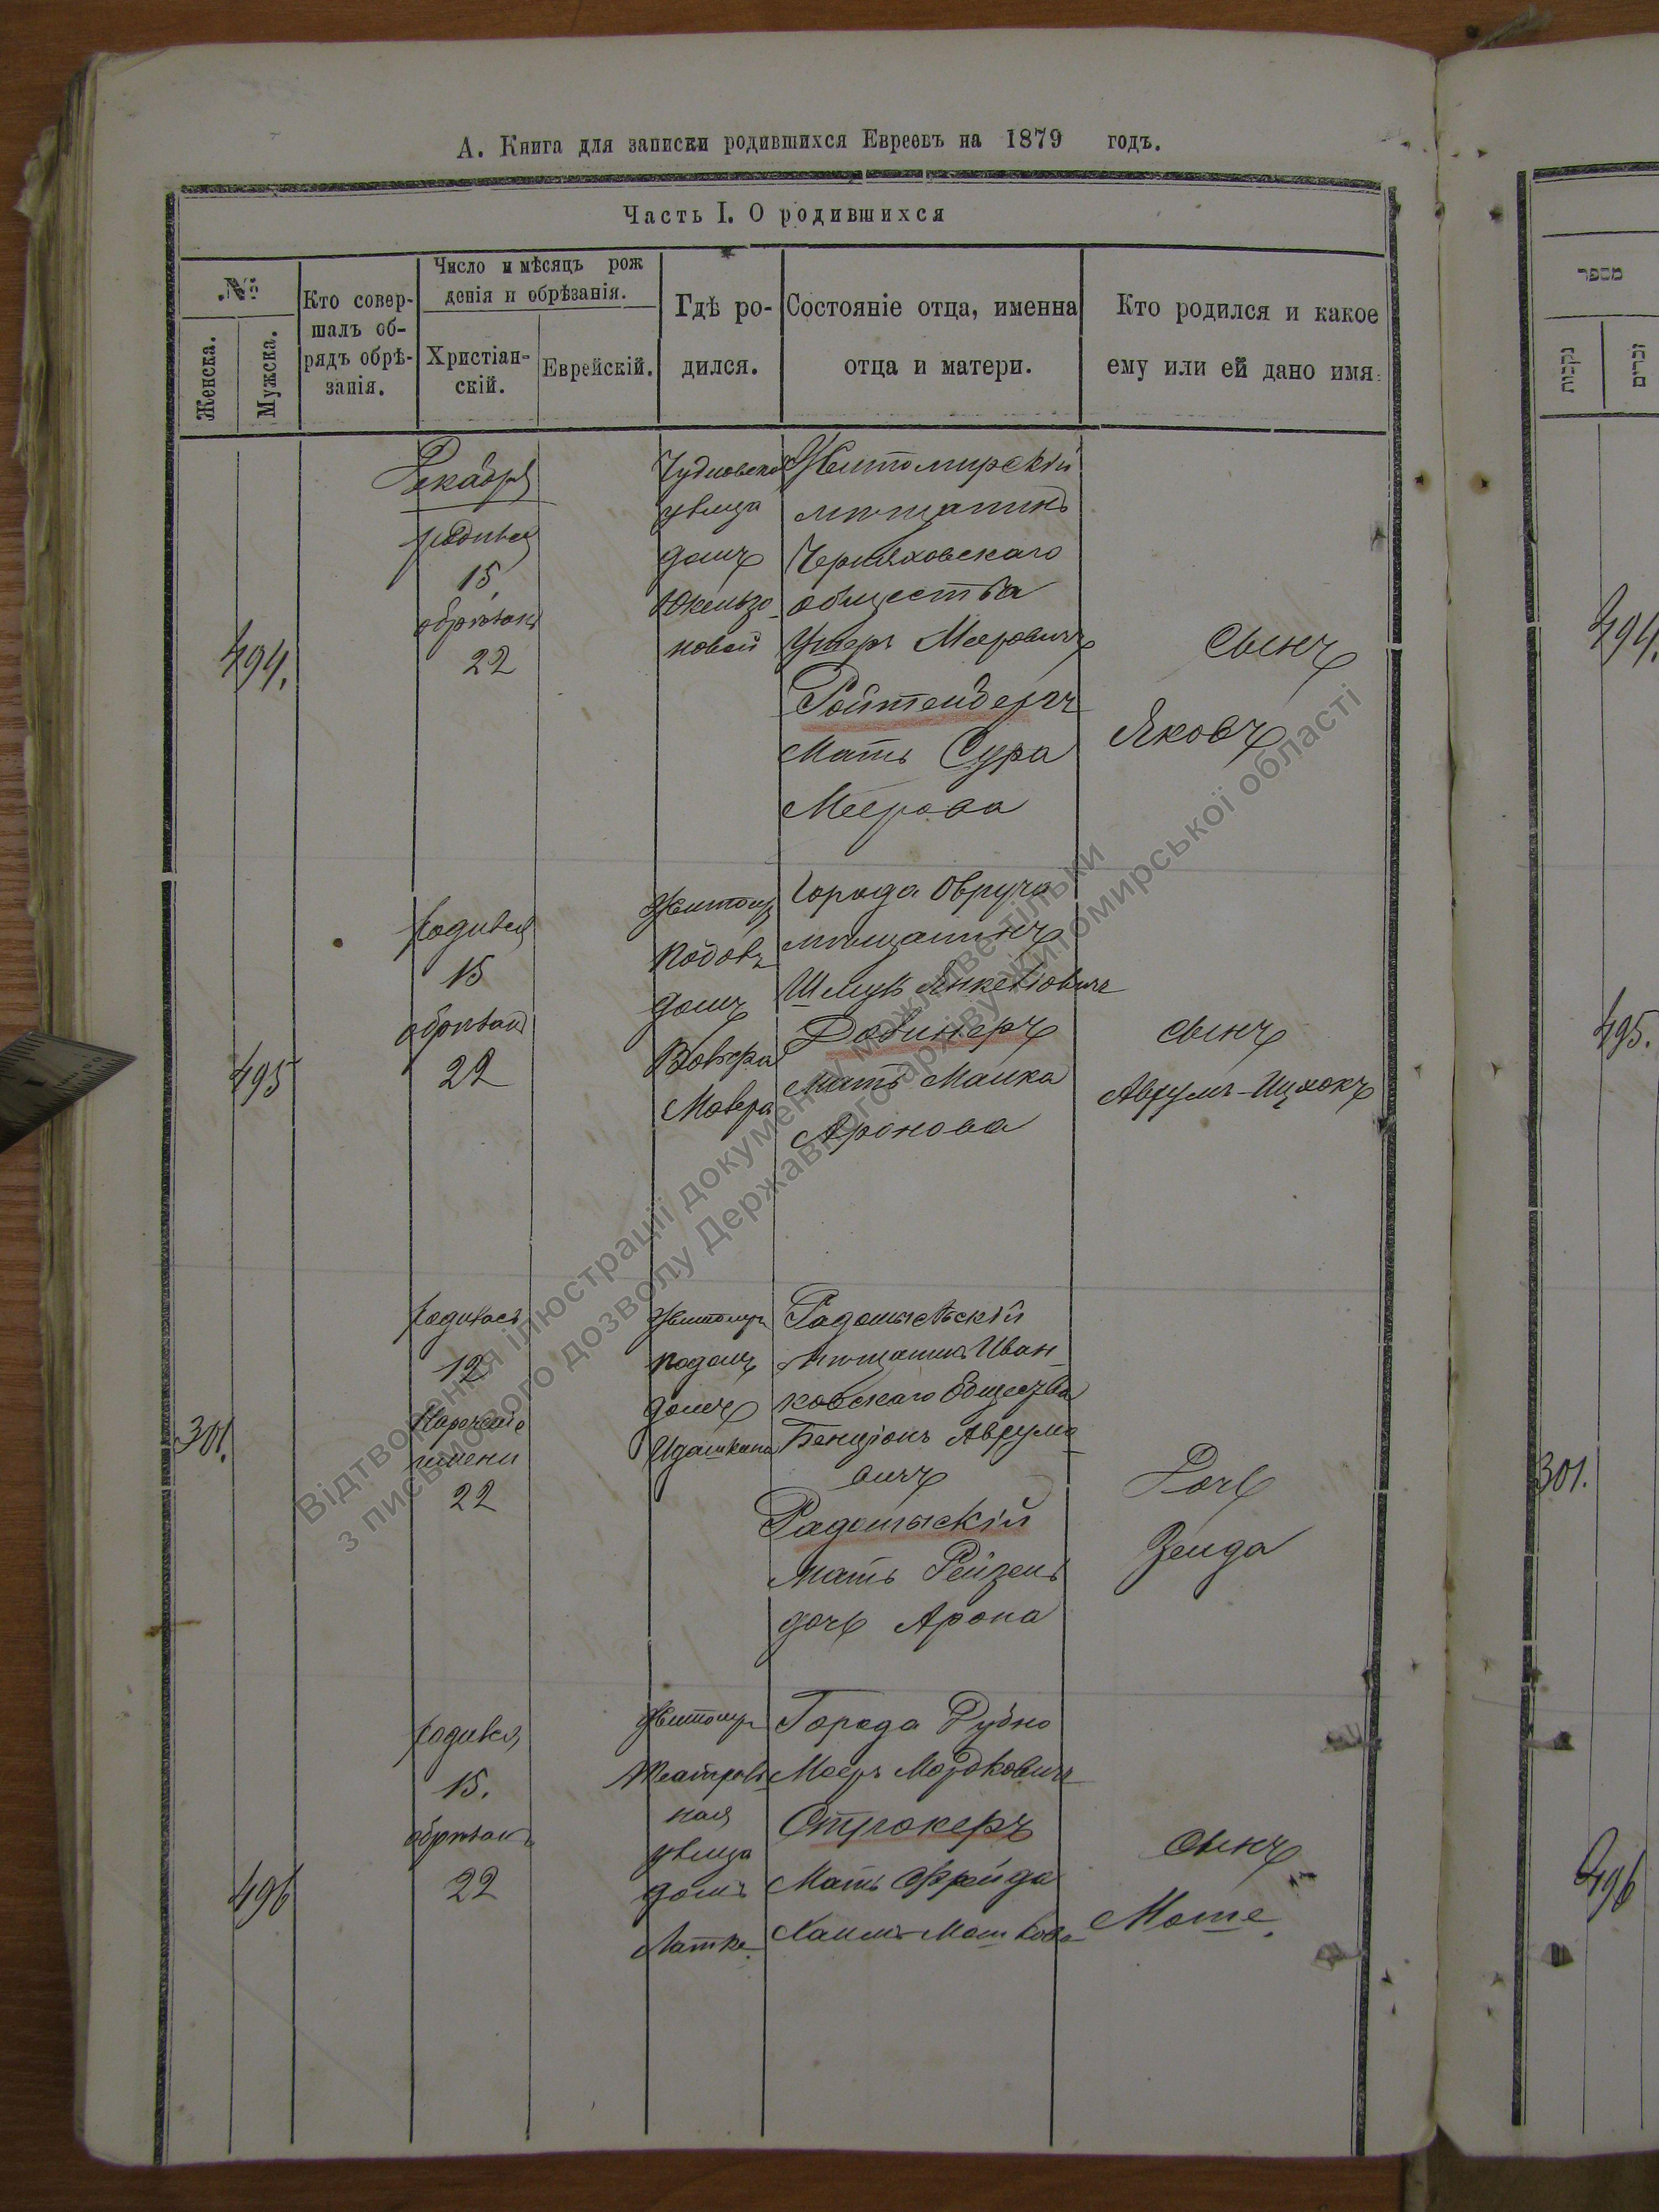 А. Книга для записки родившихся Евреевъ на 1879 годъ.
Часть I. О родившихся
№
Женска.
Мужска.
Кто совер-
шалъ об-
рядъ обрѣ-
занія.
Число и мѣсяцъ рож
денія и обрѣзанія.
Христіан-
скій.
Еврейскій.
Гдѣ ро-
дился.
Состояніе отца, именна
отца и матери.
Кто родился и какое
ему или ей дано имя:
494.
Декабря
родился
15
обрѣзанъ
22
улица
домъ
новой
Житомирскій
мѣщанинъ
Черняховскаго
общества
Ушеръ Мееровичъ
Ройтенбергъ
Мать Сура
Меерова
сынъ
Яковъ
495
родился
15
обрѣзанъ
22
Житомир
домъ
Города Овруча
мѣщанинъ
Шмуль Янкелiовичъ
Довинеръ
мать Малка
Аронова
сынъ
Аврумъ-Ицхокъ
301.
родилась
12
Нареченіе
имени
22
Житомиръ
подолъ
домъ
Радомысльскій
мѣщанинъ Иван-
ковскаго Общества
Бенціонъ Аврумо-
вичъ
Радомыскій
мать Рейзель
дочь Арона
Дочь
Зелда
496
родился
15.
обрѣзанъ
22
Житомиръ
ная
улица
домъ
Города Дубно
Мееръ Мордковичъ
Строкеръ
Мать Фрейда
Хаимъ-Мошкова
сынъ
Моше.
מספר
נקבות
זכרים
494.
495.
301.
496
Відтворення ілюстрації документу можливе тільки
з письмового дозволу Державного архіву Житомирської області